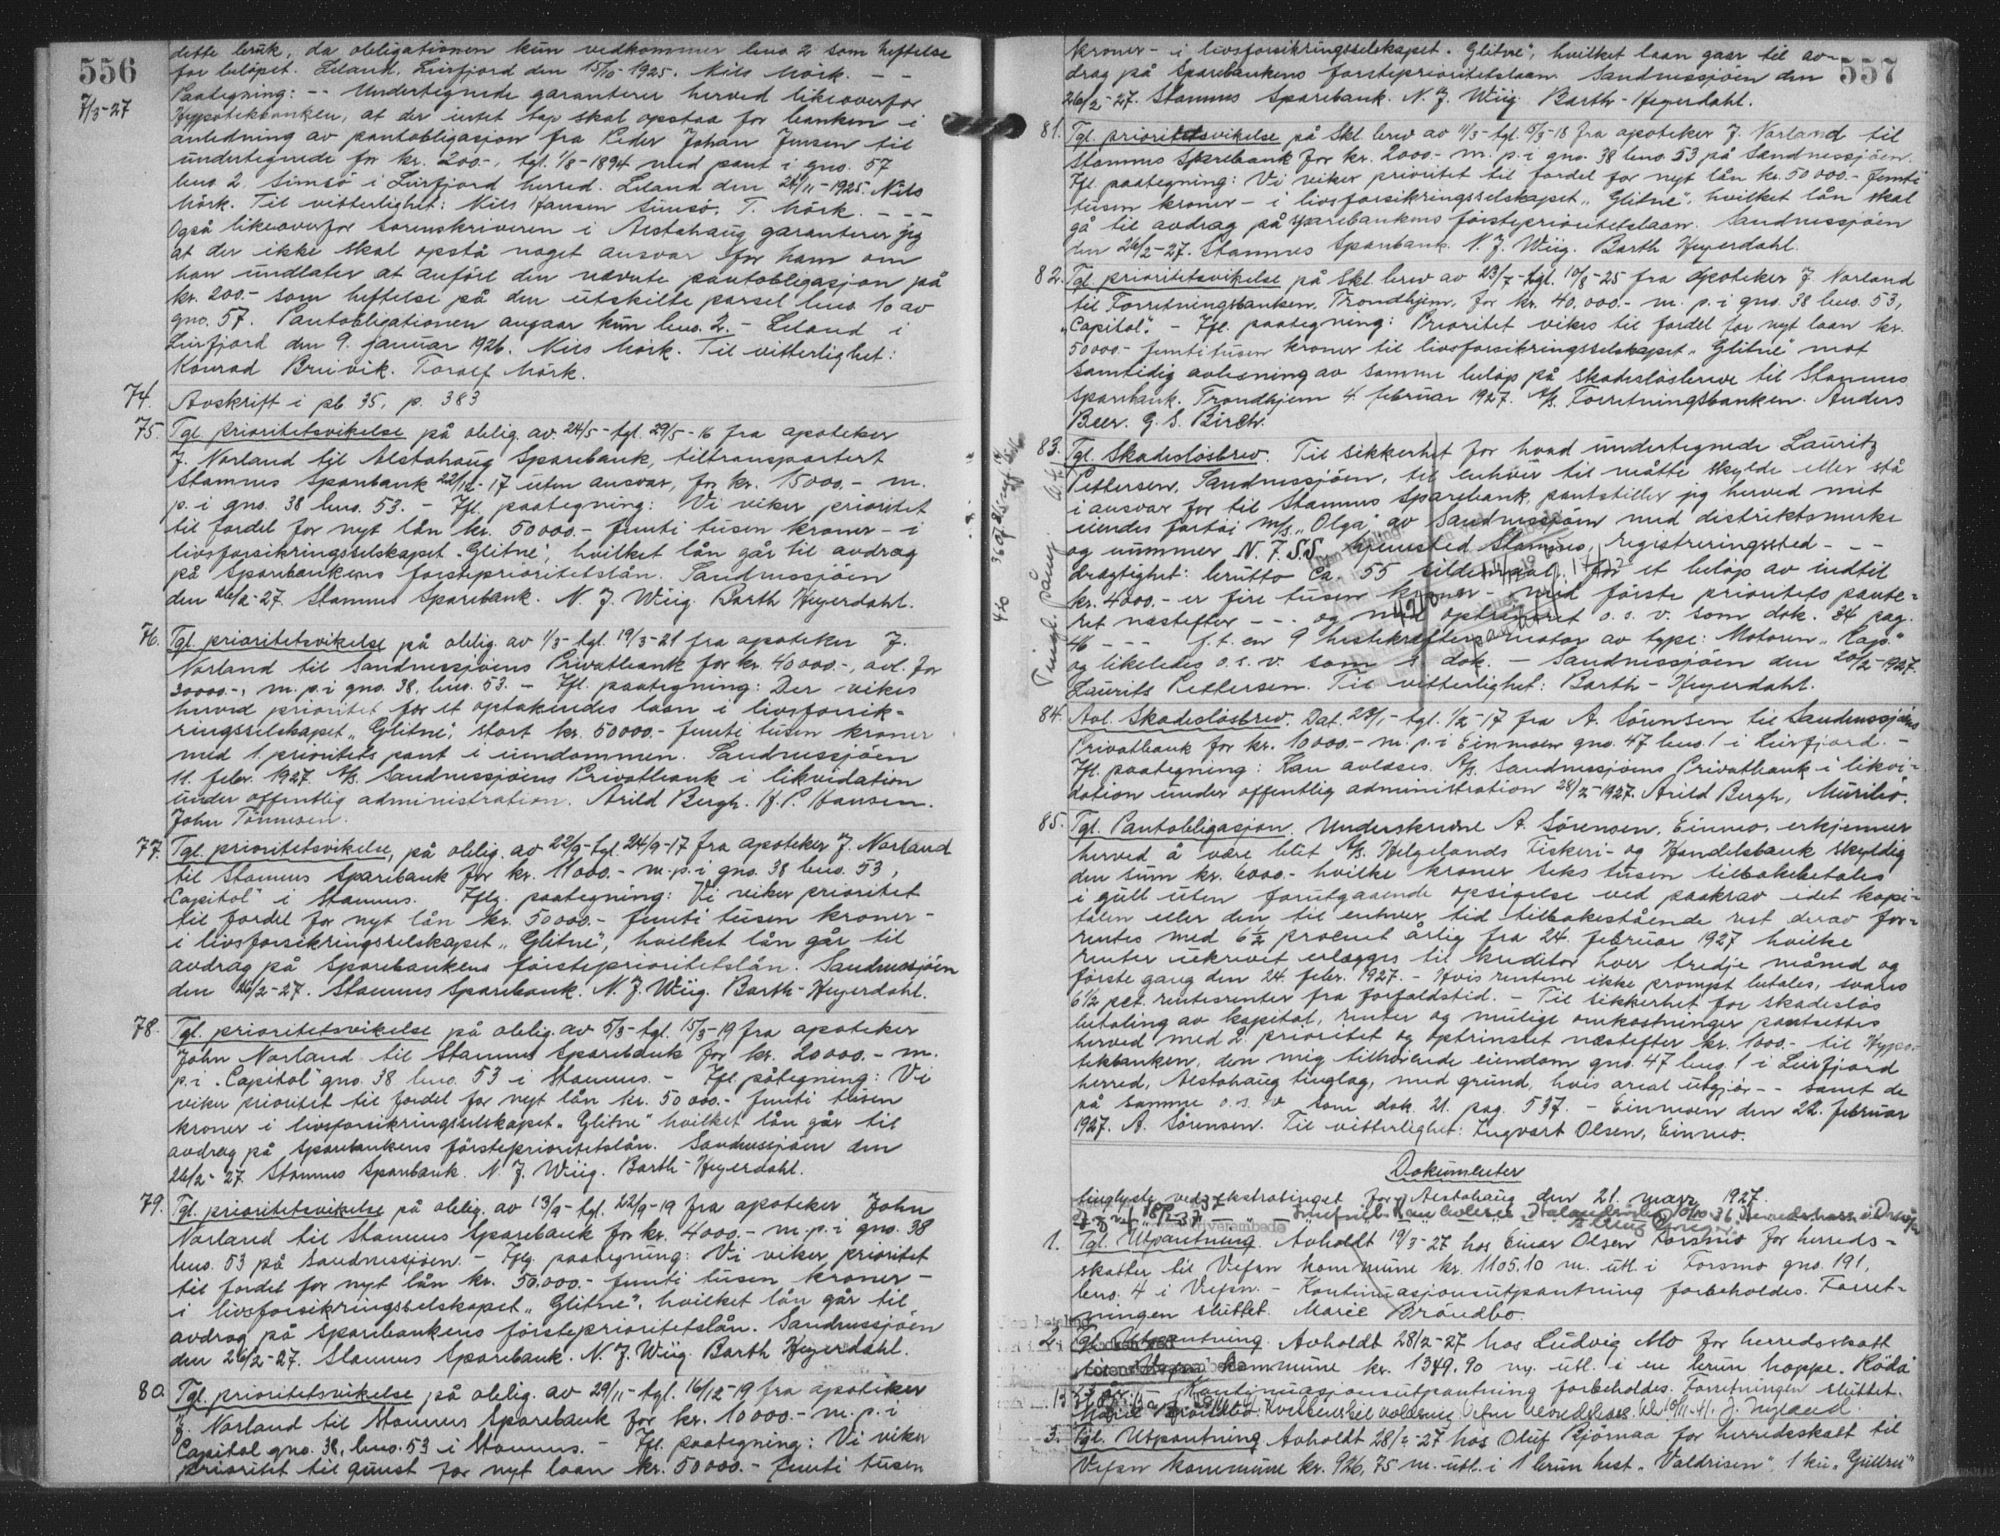 556
7/3-27
dette bruk, da obligationen kun vedkommer bno 2 som heftelse
for beløpet. Leland, Leirfjord den 15/10-1925. Nils Mörk. - -
Paategning: -- Undertegnede garanterer herved likeoverfor
Hypotekbanken, at der intet tap skal opstaa for banken i
anledning av pantobligasjon fra Peder Johan Jensen til
undertegnede for kr. 200.-, tgl. 1/8-1894 med pant i gno. 57
bno 2 Simsö i Leirfjord herred. Leland den 24/11-1925 Nils
Mörk. Til vitterlighet: Nils Jansen Simsö. T. Mörk. - - -
Også likeoverfor sorenskriveren i Alstahaug garanterer jeg
at der ikke skal opstå noget ansvar for ham om
han undlater at anföre den nævnte pantobligasjon på
kr. 200.- som heftelse på den utskilte parsel bno. 10 av
gno. 57. Pantobligationen angaar kun bno. 2. - Leland i
Leirfjord den 9. januar 1926. Nils Mörk. Til vitterlighet:
Konrad Bruvik. Toralf Mörk.
74. Avskrift i pb. 35, p. 383
75. Tgl. prioritetsvikelse på oblig. av 24/5-tgl. 29/5-16 fra apoteker
J. Norland til Alstahaug Sparebank, tiltransportert
Stamnes Sparebank 22/12-17 uten ansvar, for kr. 15000.- m.
p. i gno. 38 bno. 53. - Ifl. paategning: Vi viker prioritet
til fordel for nyt lån kr. 50000.- femti tusen kroner - i
livsforsikringsselskapet "Glitne", hvilket lån går til avdrag
på Sparebankens förstprioritetslån. Sandnessjöen
den 26/2-27. Stamnes Sparebank. N. J. Wiig. Barth Heyerdahl.
76. Tgl. prioritetsvikelse på oblig. av 1/3-tgl. 19/3-21 fra apoteker J.
Norland til Sandnessjöens Privatbank for kr. 40000.-, avl. for
30000.-, m. p. i gno. 38, bno. 53. - Ifl. paategning: Der vikes
herved prioritet for et optakendes laan i livsforsik-
ringsselskapet "Glitne", stort kr. 50000.- femti tusen kroner
med 1. prioritets pant i eiendommen. Sandnessjöen
11. febr. 1927. A/S. Sandnessjöens Privatbank i likvidation
under offentlig administration. Arild Bergh. H. P. Hansen.
John Tönnesen.
77. Tgl. prioritetsvikelse, på oblig. av 22/9-tgl. 24/9-17 fra apoteker J. Norland
til Stamnes Sparebank for kr. 11000.- m. p. i gno. 38 bno. 53,
"Capitol" i Stamnes. Iflg. paategning: Vi viker prioritet
til fordel for nyt lån kr. 50000.- femti tusen kroner -
i livsforsikringsselskapet "Glitne", hvilket lån går til
avdrag på Sparebankens förstprioritetslån. Sandnessjöen
den 26/2-27. Stamnes Sparebank. N. J. Wiig. Barth-Heyerdahl.
78. Tgl. prioritetsvikelse på oblig. av 5/3-tgl. 15/3-19 fra apoteker
John Norland til Stamnes Sparebank for kr. 20000.- m.
p. i "Capitol" gno. 38 bno. 53 i Stamnes. - Ifl. påtegning: Vi
viker prioritet til fordel for nyt lån kr. 50000.- femti tusen
kroner i livsforsikringsselskapet "Glitne" hvilket lån går til
avdrag på Sparebankens förstprioritetslån. Sandnessjöen den
26/2-27. Stamnes Sparebank. N. J. Wiig. Barth-Heyerdahl.
79. Tgl. prioritetsvikelse på oblig. av 13/9-tgl. 22/9-19 fra apoteker John
Norland til Stamnes Sparebank for kr. 4000.- m. p. i gno. 38
bno. 53 på Sandnessjöen. - Iflg. paategning: Vi viker prioritet
til fordel for nyt lån kr. 50.000.- femti tusen kroner -
i livsforsikringsselskapet "Glitne", hvilket lån går til
avdrag på Sparebankens förstprioritetslån. Sandnessjöen
den 26/2-27. Stamnes Sparebank. N. J. Wiig. Barth Heyerdahl.
80. Tgl. prioritetsvikelse på oblig. av 29/11-tgl. 16/12-19 fra apoteker
J. Norland til Stamnes Sparebank for kr. 10000.- m. p. i
Capitol gno. 38, bno. 53 i Stamnes. - Ifl. paategning: Vi viker
prioritet til gunst for nyt laan kr. 50000.- femti tusen
557
kroner - i livsforsikringsselskapet "Glitne", hvilket laan gaar til av-
drag på Sparebankens förstprioritetslaan. Sandnessjöen den
26/2-27. Stamnes Sparebank. N. J. Wiig. Barth-Heyerdahl.
81. Tgl. prioritetsvikelse på Skl. brev av fra apoteker J. Norland til
Stamnes Sparebank for kr. 2000.- m. p. i gno. 38 bno 53 på Sandnessjöen.
Ifl. paategning: Vi viker prioritet til fordel for nyt lån kr. 50000.- femti
tusen kroner - i livsforsikringsselskapet "Glitne", hvilket lån skal
gå til avdrag på Sparebankens förstprioritetslaan. Sandnessjöen
den 26/2-27. Stamnes Sparebank. N. J. Wiig. Barth Heyerdahl.
82. Tgl. prioritetsvikelse på Skl. brev av 23/7-tgl. 10/8-25 fra apoteker J. Norland
til Forretningsbanken, Trondhjem, for kr. 40.000.- m. p. i gno. 38 bno. 53,
"Capitol". - Ifl. paategning: Prioritet vikes til fordel for nyt laan kr.
50000.- femti tusen kroner til livsforsikringsselskapet "Glitne" mot
samtidig avlesning av samme beløp på skadeslösbreve til Stamnes
Sparebank. Trondhjem 4. februar 1927. A/S. Forretningsbanken. Anders
Beer. G. S. Birch.
83. Tgl. Skadeslösbrev. Til sikkerhet for hvad undertegnede Lauritz
Pettersen, Sandnessjöen, til enhver til måtte skylde eller stå
i ansvar for til Stamnes Sparebank, pantstiller jeg herved mit
eiendes fartöi m/s. "Olga" av Sandnessjöen med distriktsmerke
og nummer N. 7 S.S. hjemsted Stamnes, registreringssted - - -
drægtighet: brutto ca. 55 for et belöp av indtil
kr. 4000.- er fire tusen kroner - med förste prioritets pante-
ret næstefter --- og med optrinsret o. s. v. som dok. 34 pag.
46 - - - f. t. en 9 hestekræfters motor av type: Motoren "Rap"
og likeledes o. s. v. som s. dok. - Sandnessjöen den 20/2-1927.
Laurits Pettersen. Til vitterlighet: Barth-Heyerdahl.
84. Avl. Skadeslösbrev. Dat. 23/1-tgl. 1/2-17 fra A. Sörensen til Sandnessjöens
Privatbank for kr. 10000.- m. p. i Einmoen gno. 47 bno. 1 i Leirfjord. -
Ifl. paategning: Kan avlæses. A/S. Sandnessjöens Privatbank i likvi-
dation under offentlig administration 28/2-1927. Arild Bergh,
85. Tgl. Pantobligasjon. Underskrevne A. Sörensen, Einmo, erkjenner
herved å være blit A/S. Helgelands Fiskeri- og Handelsbank skyldig
den sum kr. 6000.- hvilke kroner seks tusen tilbakebetales
i gull uten forutgaaende opsigelse ved paakrav idet kapi-
talen eller den til enhver tid tilbakestående rest derav for-
rentes med 6½ procent årlig fra 24. februar 1927 hvilke
renter uekrevet erlægges til kreditor hver tredje måned og
förste gang den 24. febr. 1927. - Hvis rentene ikke prompt betales, svares
6½ pct. rentesrenter fra forfaldstid. - Til sikkerhet for skadeslös
betaling av kapital, renter og mulige omkostninger pantsettes
herved med 2. prioritet og optrinsret næstefter kr. 1000.- til Hypo-
tekbanken, den mig tilhörende eiendom gno. 47 bno. 1 i Leirfjord
herred, Alstahaug tinglag, med grund, hvis areal utgjör - - samt de
på samme o. s. v. som dok. 21. pag. 537. - Einmoen den 22. februar
1927. A. Sörensen. Til vitterlighet: Ingvart Olsen, Einmo.
Dokumenter
tinglyste ved ekstratinget for Alstahaug den 21. mars 1927.
1. Tgl. Utpantning. Avholdt 19/3-27 hos Einar Olsen Forsmo for herreds-
skatter til Vefsn kommune kr. 1105.10 m. utl. i Forsmo gno. 191,
bno. 4 i Vefsn. - Kontinuasjonsutpantning forbeholdes. Forret-
ningen sluttet. Marie Bröndbo.
2. Tgl. Utpantning. Avholdt 28/2-27 hos Ludvig Mo for herredsskatt
til Vefsn kommune kr. 1349.90 m. utl. i en brun hoppe "Röda"
Kontinuasjonsutpantning forbeholdes. Forretningen sluttet.
Marie Bröndbo.
3. Tgl. Utpantning. Avholdt 28/2-27 hos Oluf Björnaa for herredsskatt til
Vefsn kommune kr. 926,75 m. utl. i 1 brun hest "Valdrisen", 1 ku "Gullrei"